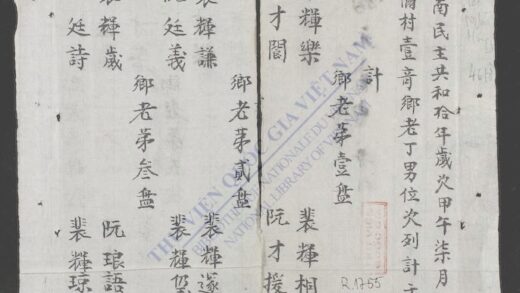 南民主共和拾年歲次甲午柒月
村壹音鄉老丁男位次列計于
計
鄉老第壹盤
輝樂 裴輝桐
才閣 阮才援
鄉老第貳盤
裴輝謙 裴輝遂
廷義 裴輝
鄉老第叁盤
輝歲 阮琅語
廷詩 裴輝琼
THƯ VIỆN QUỐC GIA VIỆT NAM
BIBLIOTHÈQUE NATIONALE DU VIETNAM
NATIONAL LIBRARY OF VIETNAM
R.1755